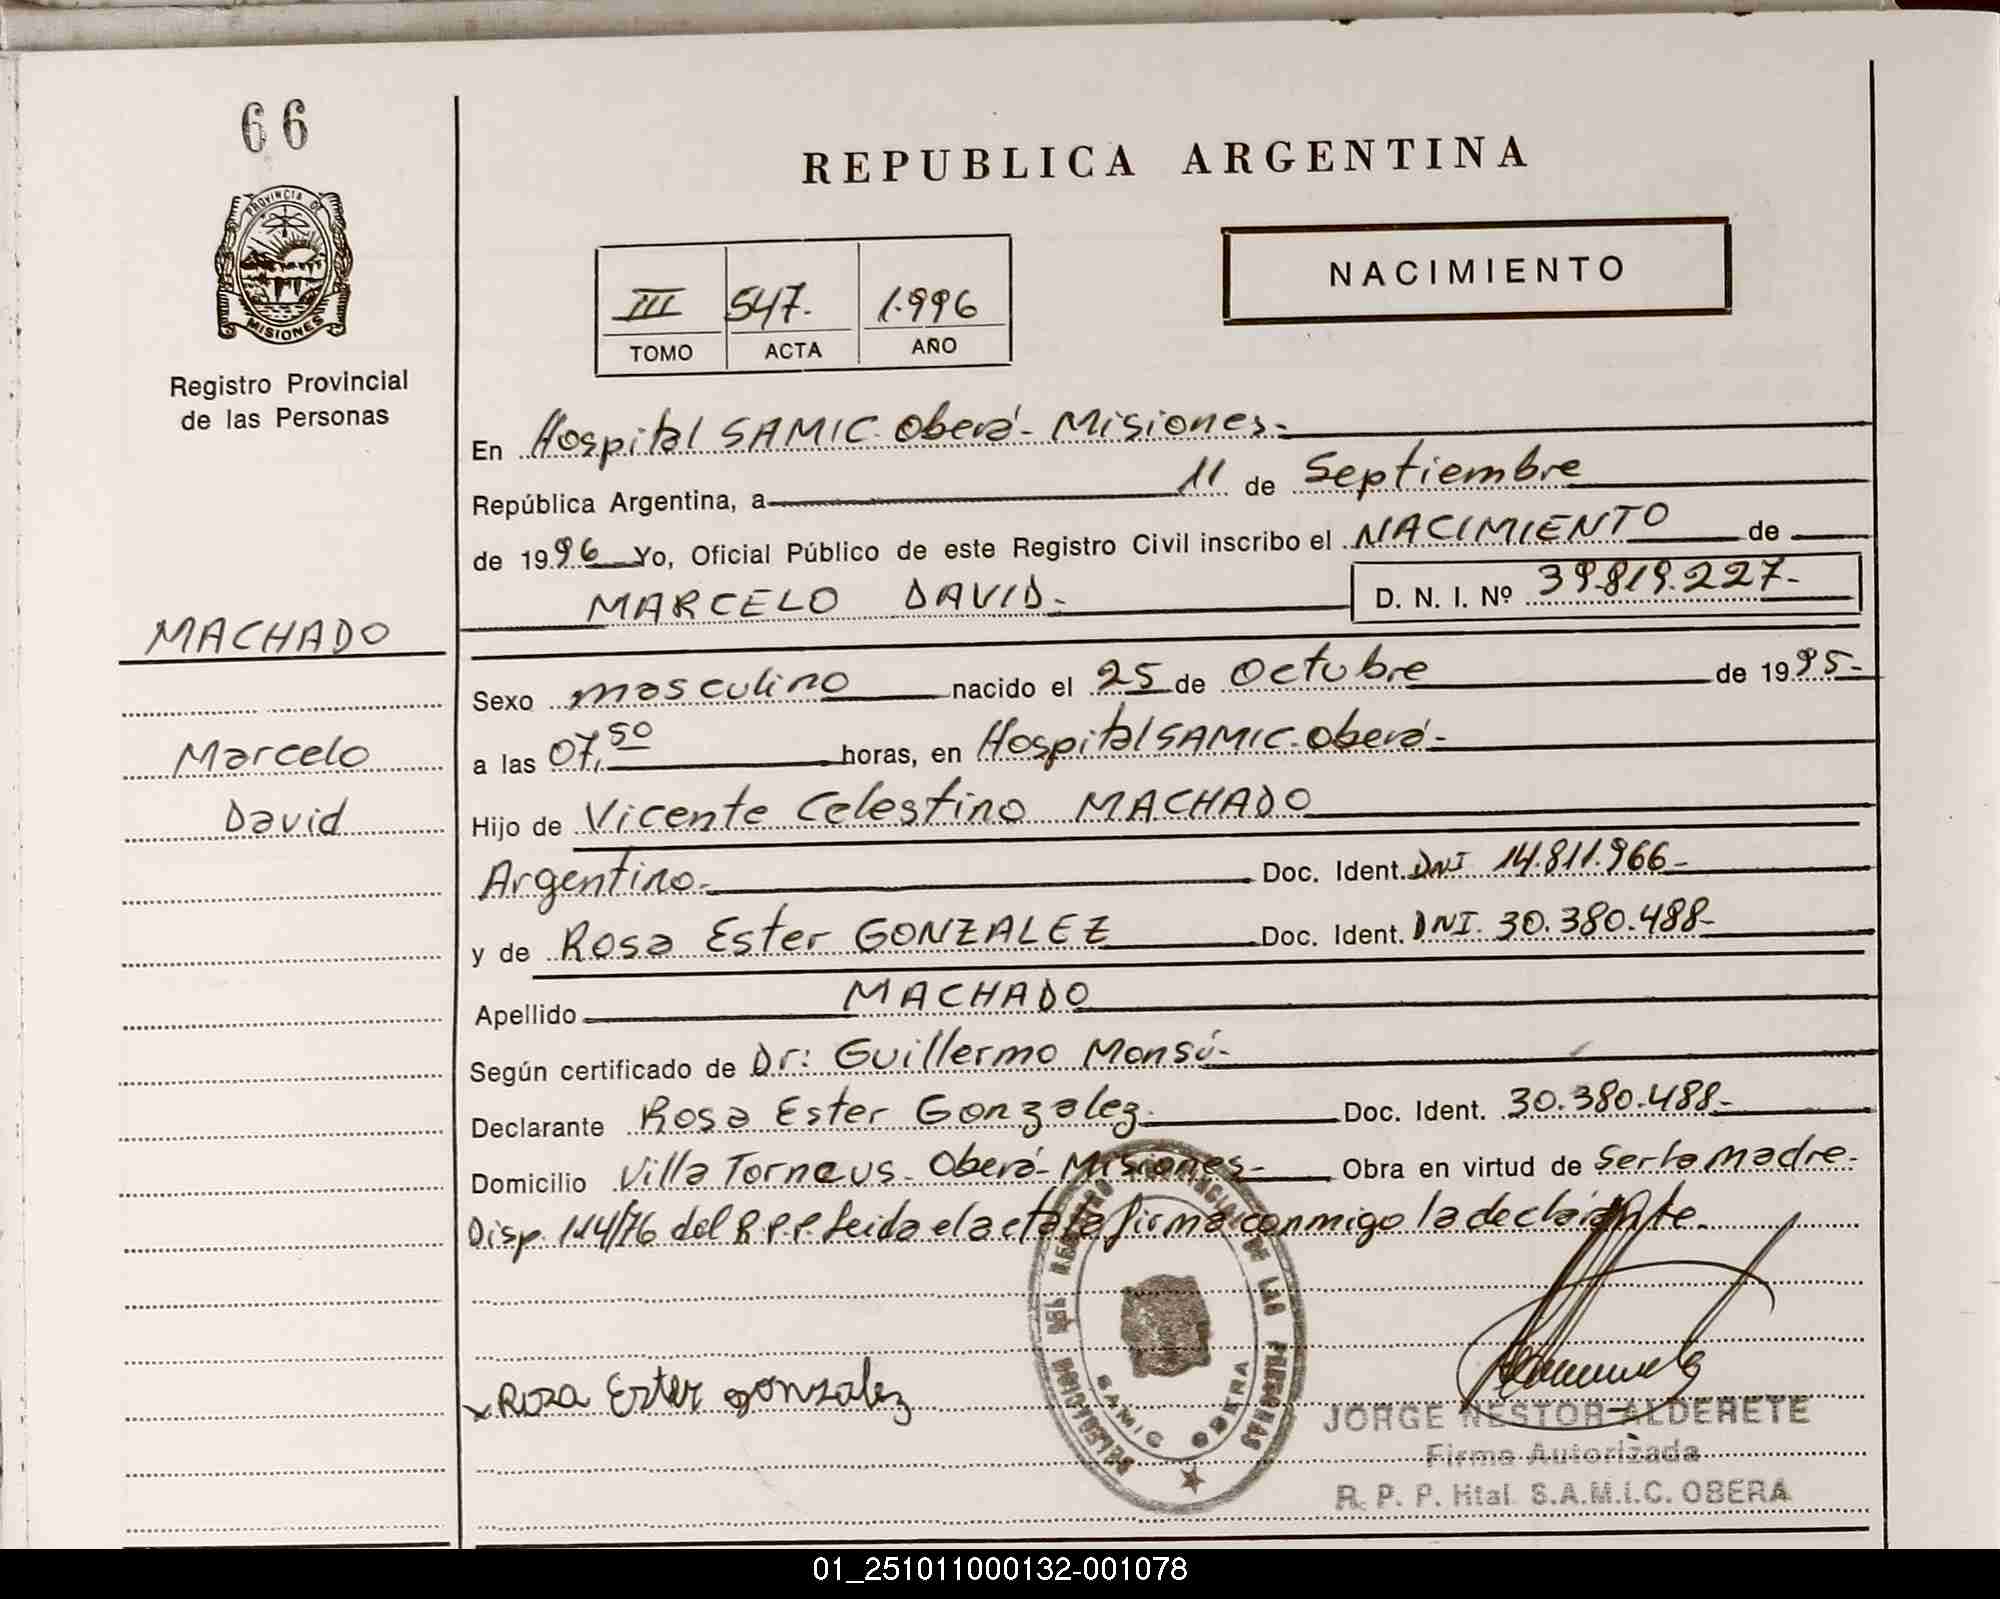 66
PROVINCIA DE
MISIONES
Registro Provincial
de las Personas
MACHADO
Marcelo
David
REPUBLICA ARGENTINA
NACIMIENTO
III 547. 1.996
TOMO ACTA AÑO
En Hospital SAMIC. Oberá - Misiones.-
República Argentina, a 11 de Septiembre
de 1996 Yo, Oficial Público de este Registro Civil inscribo el NACIMIENTO de
MARCELO DAVID.- D. N. I. Nº 39.819.227.-
Sexo masculino nacido el 25 de Octubre de 1995.-
a las 07,50 horas, en Hospital SAMIC. Oberá.-
Hijo de Vicente Celestino MACHADO
Argentino.- Doc. Ident. DNI 14.811.966.-
y de Rosa Ester GONZALEZ Doc. Ident. DNI. 30.380.488.-
Apellido MACHADO
Según certificado de Dr: Guillermo Monsú.-
Declarante Rosa Ester Gonzalez.- Doc. Ident. 30.380.488.-
Domicilio Villa Torneus - Oberá - Misiones.- Obra en virtud de ser la madre.-
Disp. 114/76 del R.P.P. Leida el acta la firma conmigo la declarante.
DELEGACION DEL REGISTRO PROVINCIAL DE LAS PERSONAS
SAMIC OBERA
x Rosa Ester gonzalez
JORGE NESTOR ALDERETE
Firma Autorizada
R. P. P. Htal. S.A.M.I.C. OBERA
01_251011000132-001078